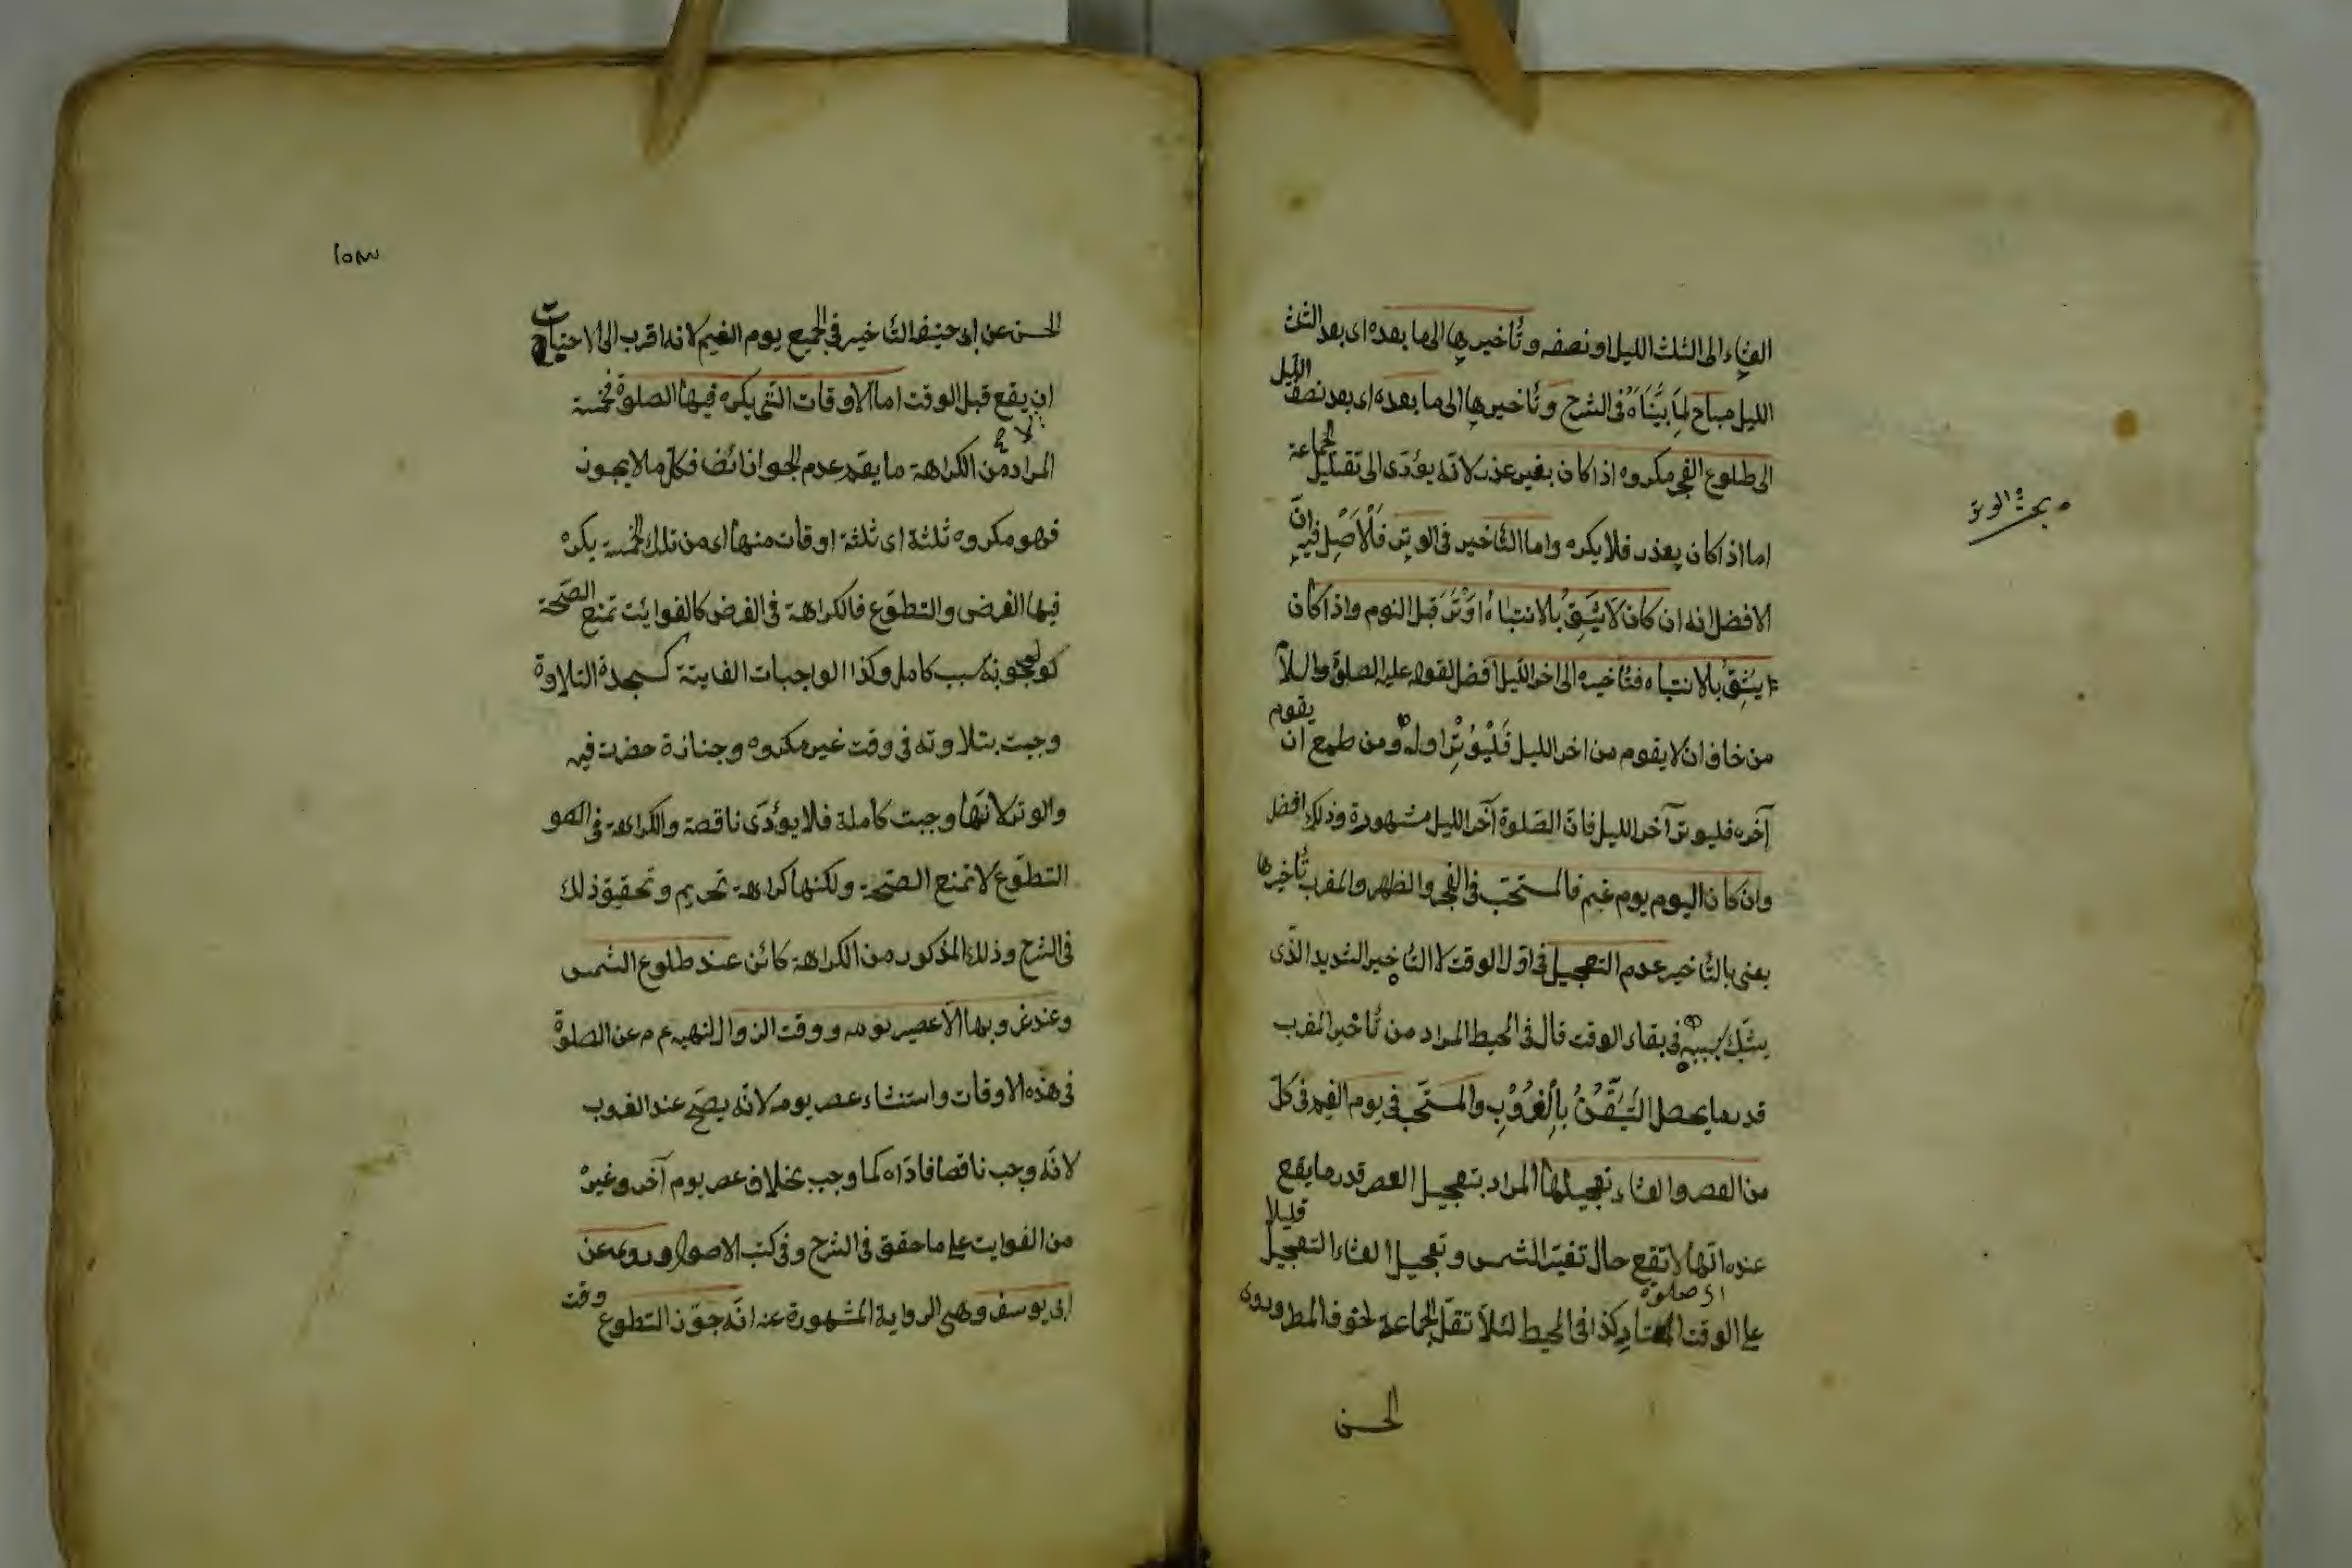 العشاء الى الثلث الليل او نصفه وتأخيرها الى ما بعده اى بعد الثلث
الليل مباح لما بيناه فى الشرح وتأخيرها الى ما بعده اى بعد نصف الليل
الى طلوع الفجر مكروه اذا كان بغير عذر لانه يؤدى الى تقليل الجماعة
اما اذا كان بعذر فلا يكره واما التأخير فى الوتر فالاصل فيه ان
الافضل انه ان كان لا يثق بالانتباه اوتر قبل النوم واذا كان
يثق بالانتباه فتأخيره الى اخر الليل افضل لقوله عليه الصلوة والسلام
من خاف ان لا يقوم من اخر الليل فليوتر اوله ومن طمع ان يقوم
آخره فليوتر آخر الليل فان الصلوة آخر الليل مشهودة وذلك افضل
وان كان اليوم يوم غيم فالمستحب فى الفجر والظهر والمغرب تأخيرها
يعنى بالتأخير عدم التعجيل فى اول الوقت لا التأخير الشديد الذى
يشك بسببه فى بقاء الوقت قال فى المحيط المراد من تأخير المغرب
قدر ما يحصل التيقن بالغروب والمستحب فى يوم الغيم فى كل
من العصر والعشاء تعجيلها المراد بتعجيل العصر قدر ما يقع
عنده انها لا تقع حال تغير الشمس وتعجيل العشاء التعجيل قليلا
على الوقت المعتاد كذا فى المحيط لئلا تقل الجماعة لخوف المطر وروى
اى صلوة
الحسن
بحث الوتر
١٥٣
الحسن عن ابى حنيفة التأخير فى الجميع يوم الغيم لانه اقرب الى الاحتياط
ان يقع قبل الوقت اما الاوقات التى يكره فيها الصلوة فخمسة
المراد من الكراهة ما يقدر عدم الجواز ايضا فكل ما لا يجوز
فهو مكروه ثلثة اى ثلثة اوقات منها اى من تلك الخمسة يكره
فيها الفرض والتطوع فالكراهة فى الفرض كالفوايت تمنع الصحة
لوجوبه بسبب كامل وكذا الواجبات الفايتة كسجدة التلاوة
وجبت بتلاوته فى وقت غير مكروه وجنازة حضرت فيه
والوتر لانها وجبت كاملة فلا يؤدى ناقصة والكراهة فى
التطوع لا تمنع الصحة ولكنها كراهة تحريم وتحقيق ذلك
فى الشرح وذلك المذكور من الكراهة كائن عند طلوع الشمس
وعند غروبها الا عصر يومه ووقت الزوال لنهيه عم عن الصلوة
فى هذه الاوقات واستثناء عصر يومه لانه يصح عند الغروب
لانه وجب ناقصا فاداه كما وجب بخلاف عصر يوم آخر وغيره
من الفوايت على ما حقق فى الشرح وفى كتب الاصول وروى عن
ابى يوسف وهى الرواية المشهورة عنه انه جوز التطوع وقت